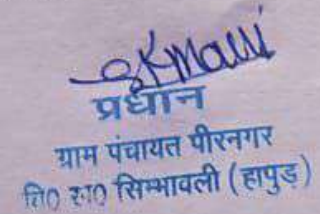 प्रधान
ग्राम पंचायत पीरनगर
वि0 ख0 सिम्भावली (हापुड़)